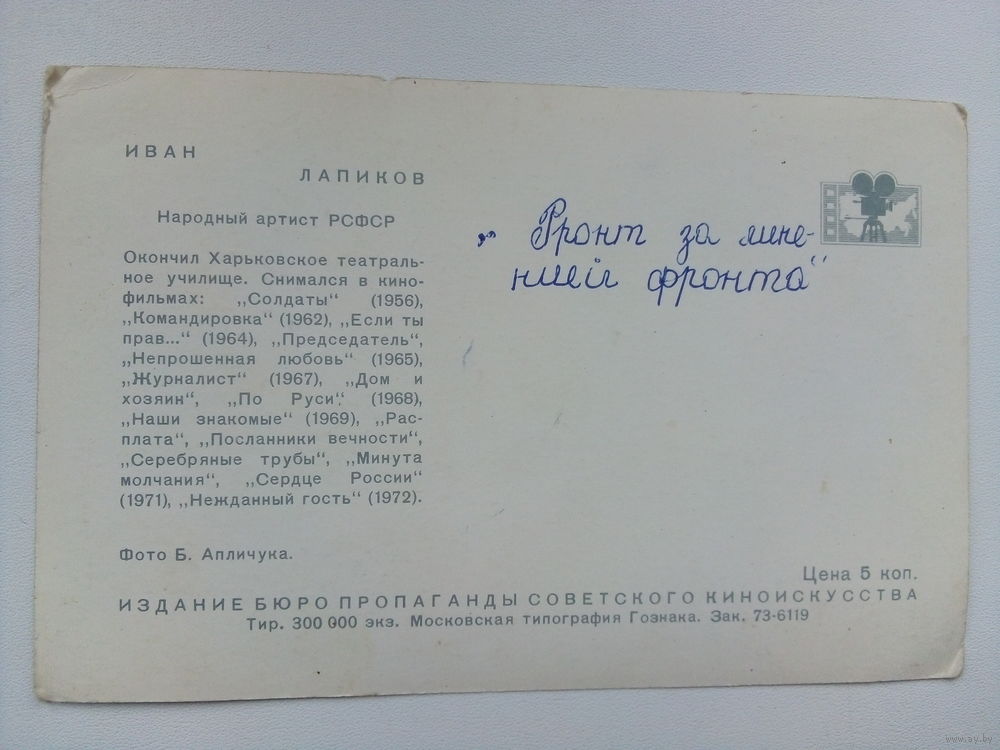 ИВАН
ЛАПИКОВ
Народный артист РСФСР
Окончил Харьковское театраль-
ное училище. Снимался в кино-
фильмах: „Солдаты“ (1956),
„Командировка“ (1962), „Если ты
прав...“ (1964), „Председатель“,
„Непрошенная любовь“ (1965),
„Журналист“ (1967), „Дом и
хозяин“, „По Руси“ (1968),
„Наши знакомые“ (1969), „Рас-
плата“, „Посланники вечности“,
„Серебряные трубы“, „Минута
молчания“, „Сердце России“
(1971), „Нежданный гость“ (1972).
Фото Б. Апличука.
„Фронт за лине-
нией фронта“
Цена 5 коп.
ИЗДАНИЕ БЮРО ПРОПАГАНДЫ СОВЕТСКОГО КИНОИСКУССТВА
Тир. 300 000 экз. Московская типография Гознака. Зак. 73-6119
www.ay.by